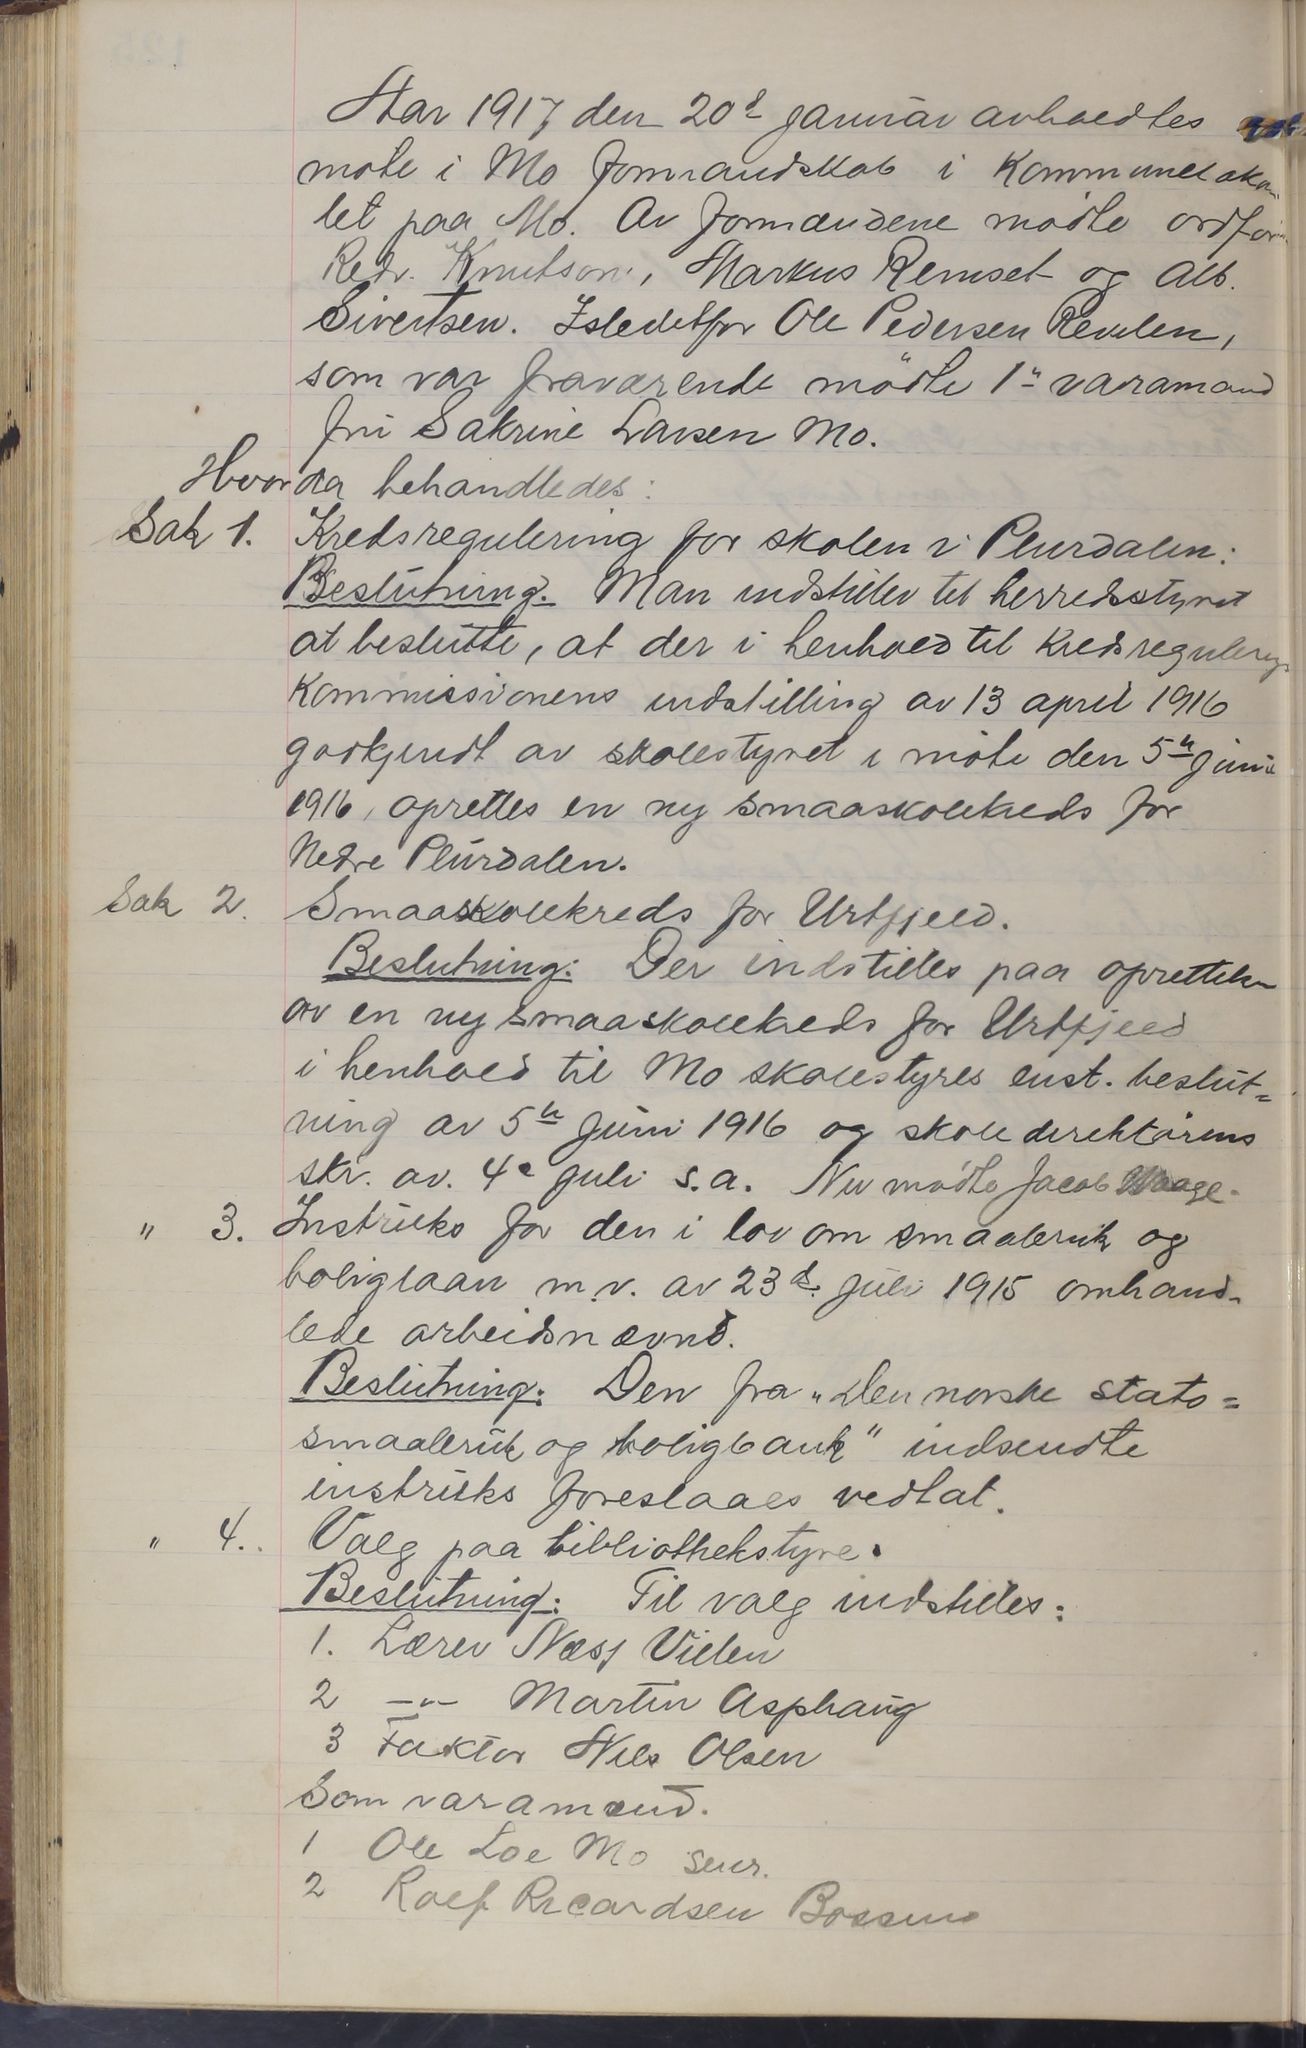 Aar 1917 den 20d januar avholdtes
møte i Mo formandskab i Kommuneloka-
let paa Mo. Av formændene mødte ordfør.
Redr. Knutson, Markus Remset og Alb.
Sivertsen. Istedetfor Ole Pedersen Revelen,
som var fraværende mødte 1ste varamand
fru Sakrine Larsen Mo.
Hvor da behandledes:
Sak 1. Kredsregulering for skolen i Plurdalen:
Beslutning. Man indstiller til herredsstyret
at beslutte, at der i henhold til Kredsregulerings
Kommissionens indstilling av 13 april 1916
godkjendt av skolestyret i møte den 5te juni
1916, oprettes en ny smaaskolekreds for
Nedre Plurdalen.
Sak 2. Smaaskolekreds for Urtfjeld.
Beslutning: Der indstilles paa oprettelse
av en ny smaaskolekreds for Urtfjeld
i henhold til Mo skolestyres enst. beslut=
ning av 5te juni 1916 og skoledirektørens
skr. av. 4e juli s.a. Nu mødte Jacob Waage.
" 3. Instruks for den i lov om smaabruk og
boliglaan m.v. av 23d. juli 1915 omhand-
lede arbeidsnævnd.
Beslutning: Den fra "Den norske stats=
smaabruk og boligbank" indsendte
instruks foreslaaes vedtat.
" 4.. Valg paa bibliothekstyre.
Beslutning: Til valg indstilles:
1. Lærer Næss Vielen
2 —"— Martin Asphaug
3 Faktor Nils Olsen
Som varamænd.
1 Ole Loe Mo senr.
2 Rolf Ricardsen Bossmo